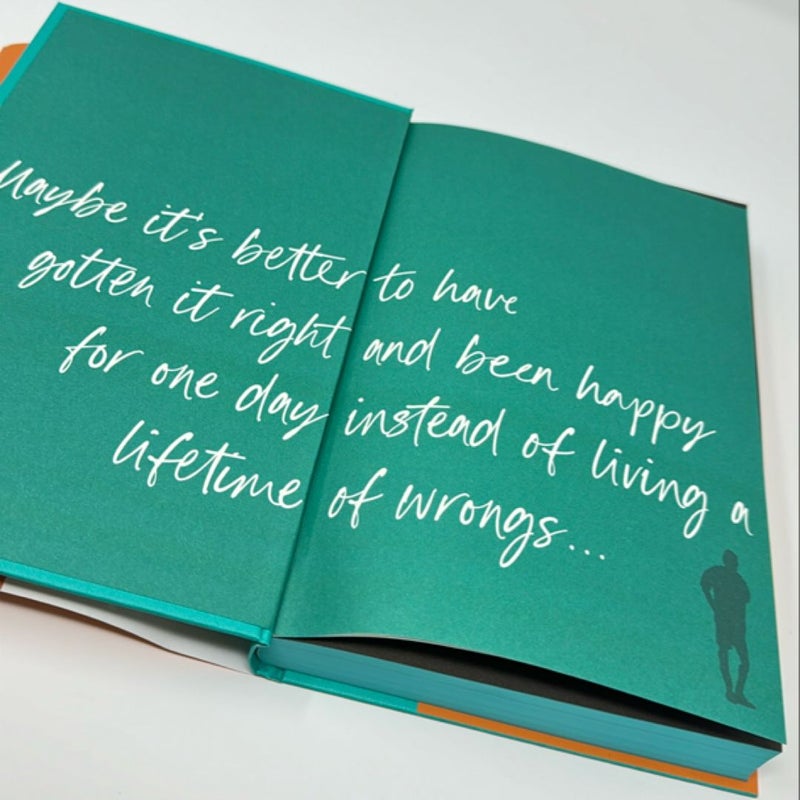 Maybe it's better to have
gotten it right and been happy
for one day instead of living a
lifetime of wrongs...